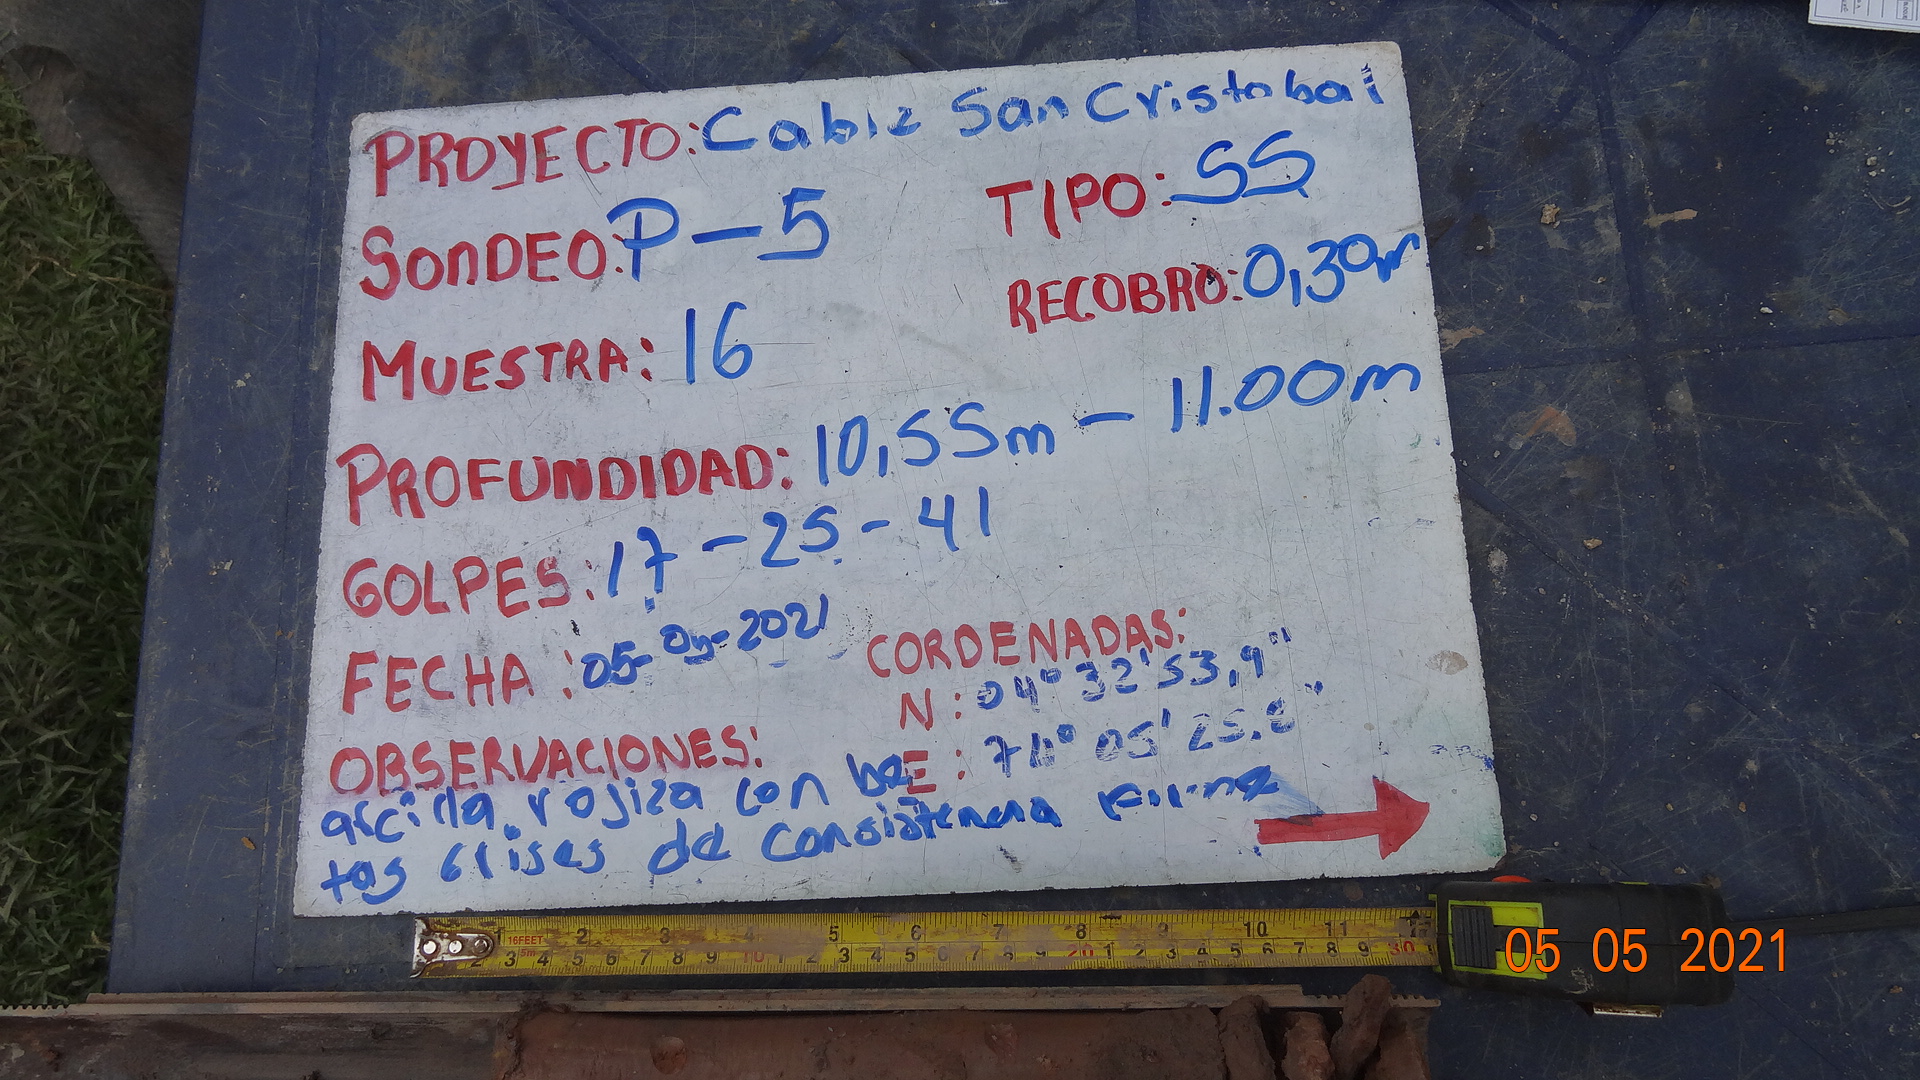 PROYECTO: Cable San Cristobal
SONDEO: P-5 TIPO: SS
MUESTRA: 16 RECOBRO: 0,30m
PROFUNDIDAD: 10,55m - 11.00m
GOLPES: 17-25-41
FECHA: 05-05-2021
CORDENADAS:
N: 04° 32' 53,9"
E: 74° 05' 25.8"
OBSERVACIONES:
arcilla rojiza con be
tas grises de consistencia firme
1 2 3 4 5 6 7 8 9 10 11
16FEET
2 3 4 5 6 7 8 9 10 1 2 3 4 5 6 7 8 9 20 1 2 3 4 5 6 7 8 9 30
05 05 2021